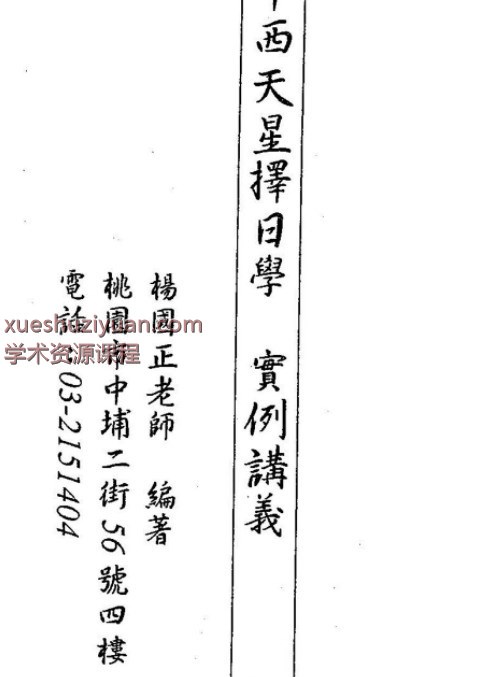 西天星擇日學 實例講義
楊國正老師 編著
桃園市中埔二街56號四樓
電話：03-2151404
xueshuziyuan.com
学术资源课程